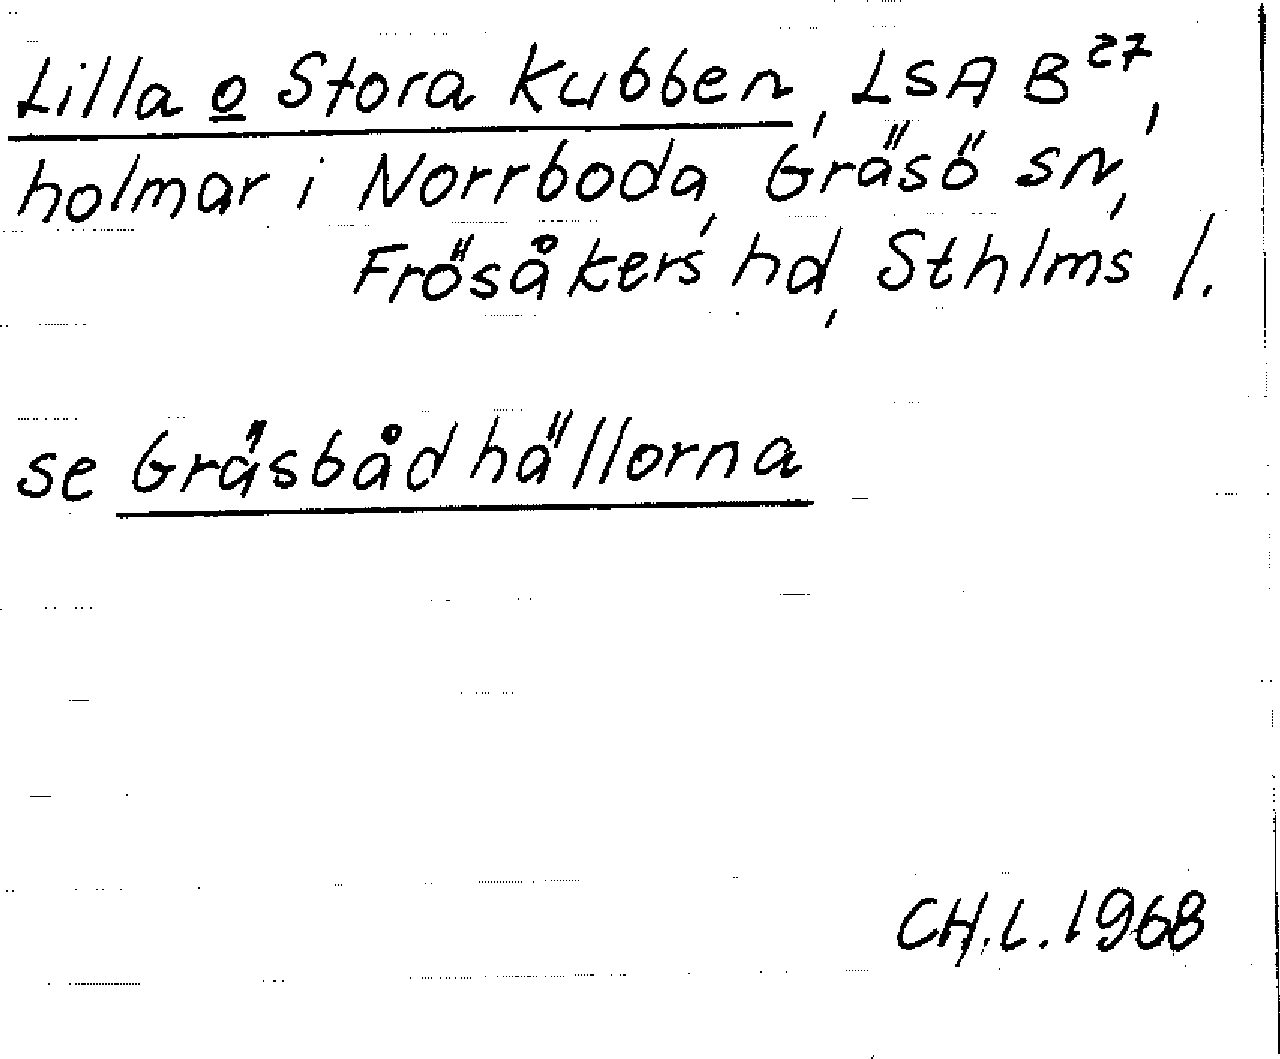 Lilla o Stora Kubben, LSA B 27,
holmar i Norrboda, Gräsö sn,
Frösåkers hd, Sthlms l.
se Gräsbådhällorna
CH.L. 1968